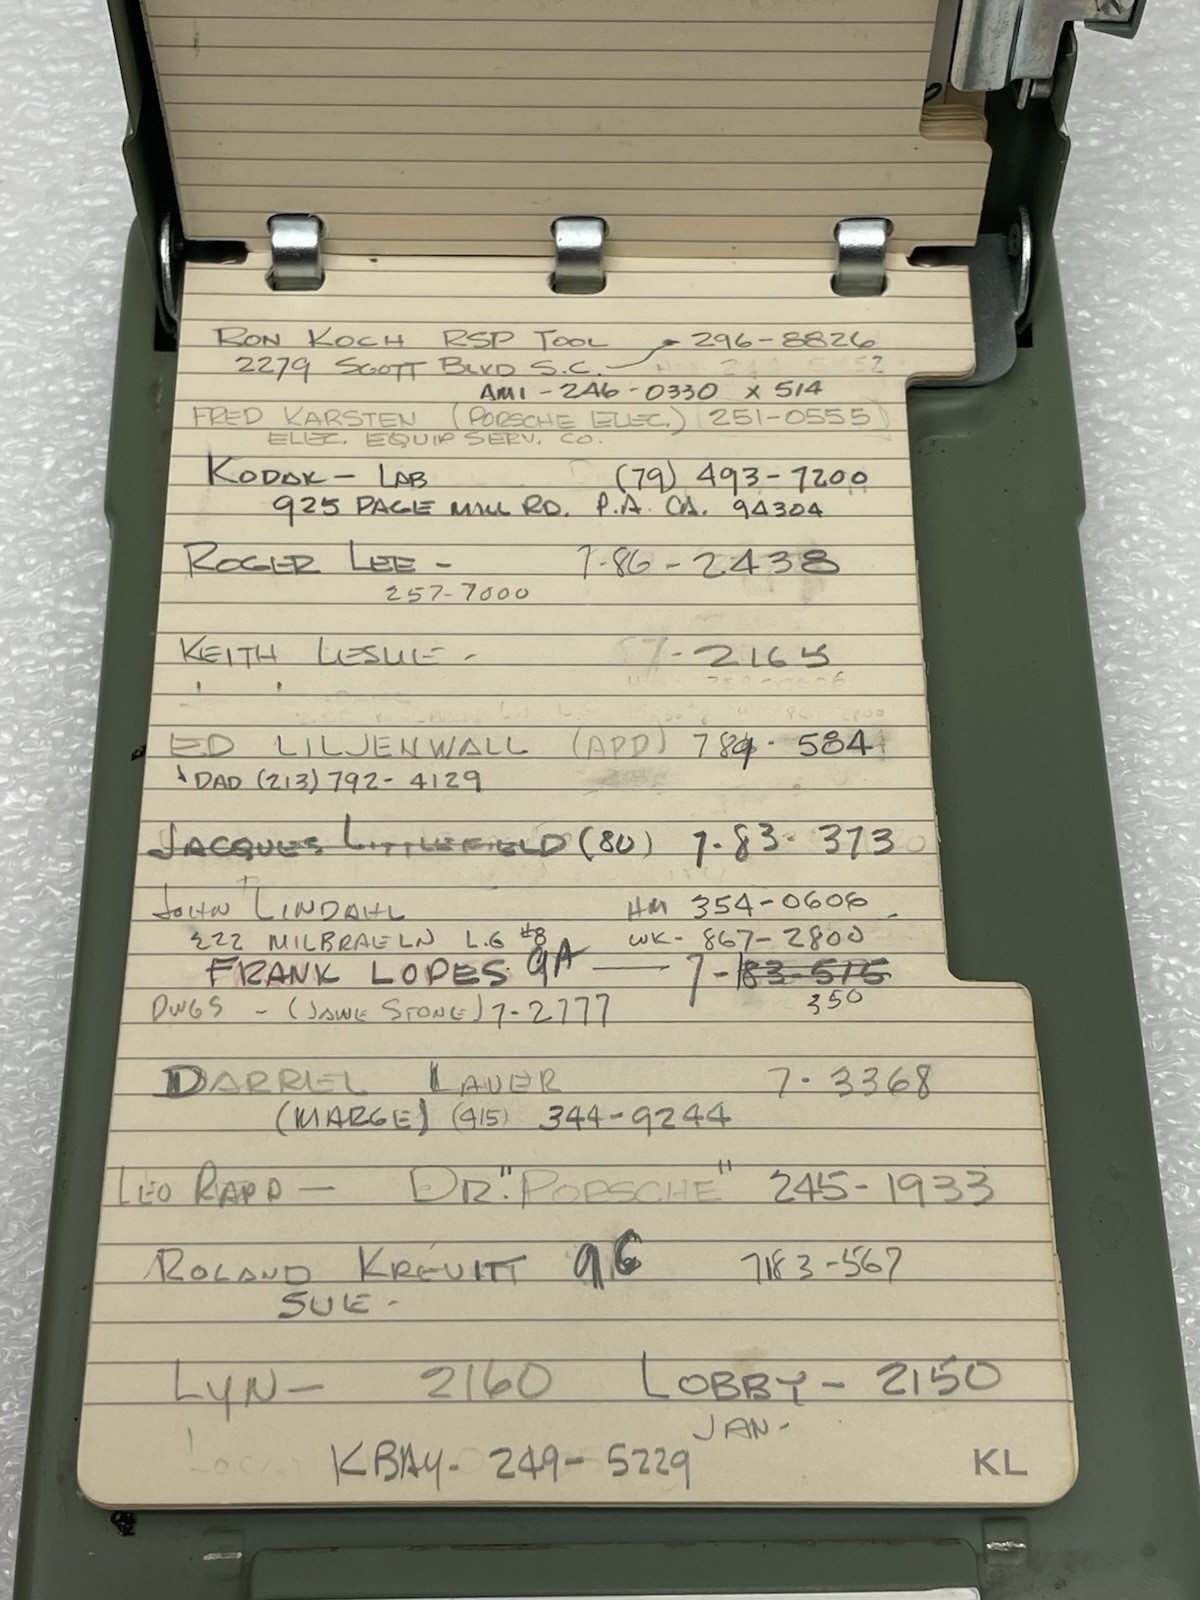 RON KOCH RSP TOOL 296-8826
2279 SCOTT BLVD S.C.
AMI - 246-0330 x 514
FRED KARSTEN (PORSCHE ELEC.) (251-0555)
ELEC. EQUIP SERV. CO.
KODAK - LAB (79) 493-7200
925 PAGE MILL RD. P.A. CA. 94304
ROGER LEE - 7-86-2438
257-7000
KEITH LESLIE - 7-2165
ED LILJENWALL (APD) 784-584
DAD (213) 792-4129
JACQUES LITTLEFIELD (80) 7-83-373
JOHN LINDAHL HM 354-0606
222 MILBRAE LN L.G #8 WK- 867-2800
FRANK LOPES 9A — 7-183-515
350
DWGS - (JAWE STONE) 7-2777
DARREL LAUER 7-3368
(MARGE) (415) 344-9244
LEO RAPP — DR. "PORSCHE" 245-1933
ROLAND KREVITT 96 7183-567
SUE -
LYN - 2160 LOBBY - 2150
JAN -
KBAY - 249-5229
KL